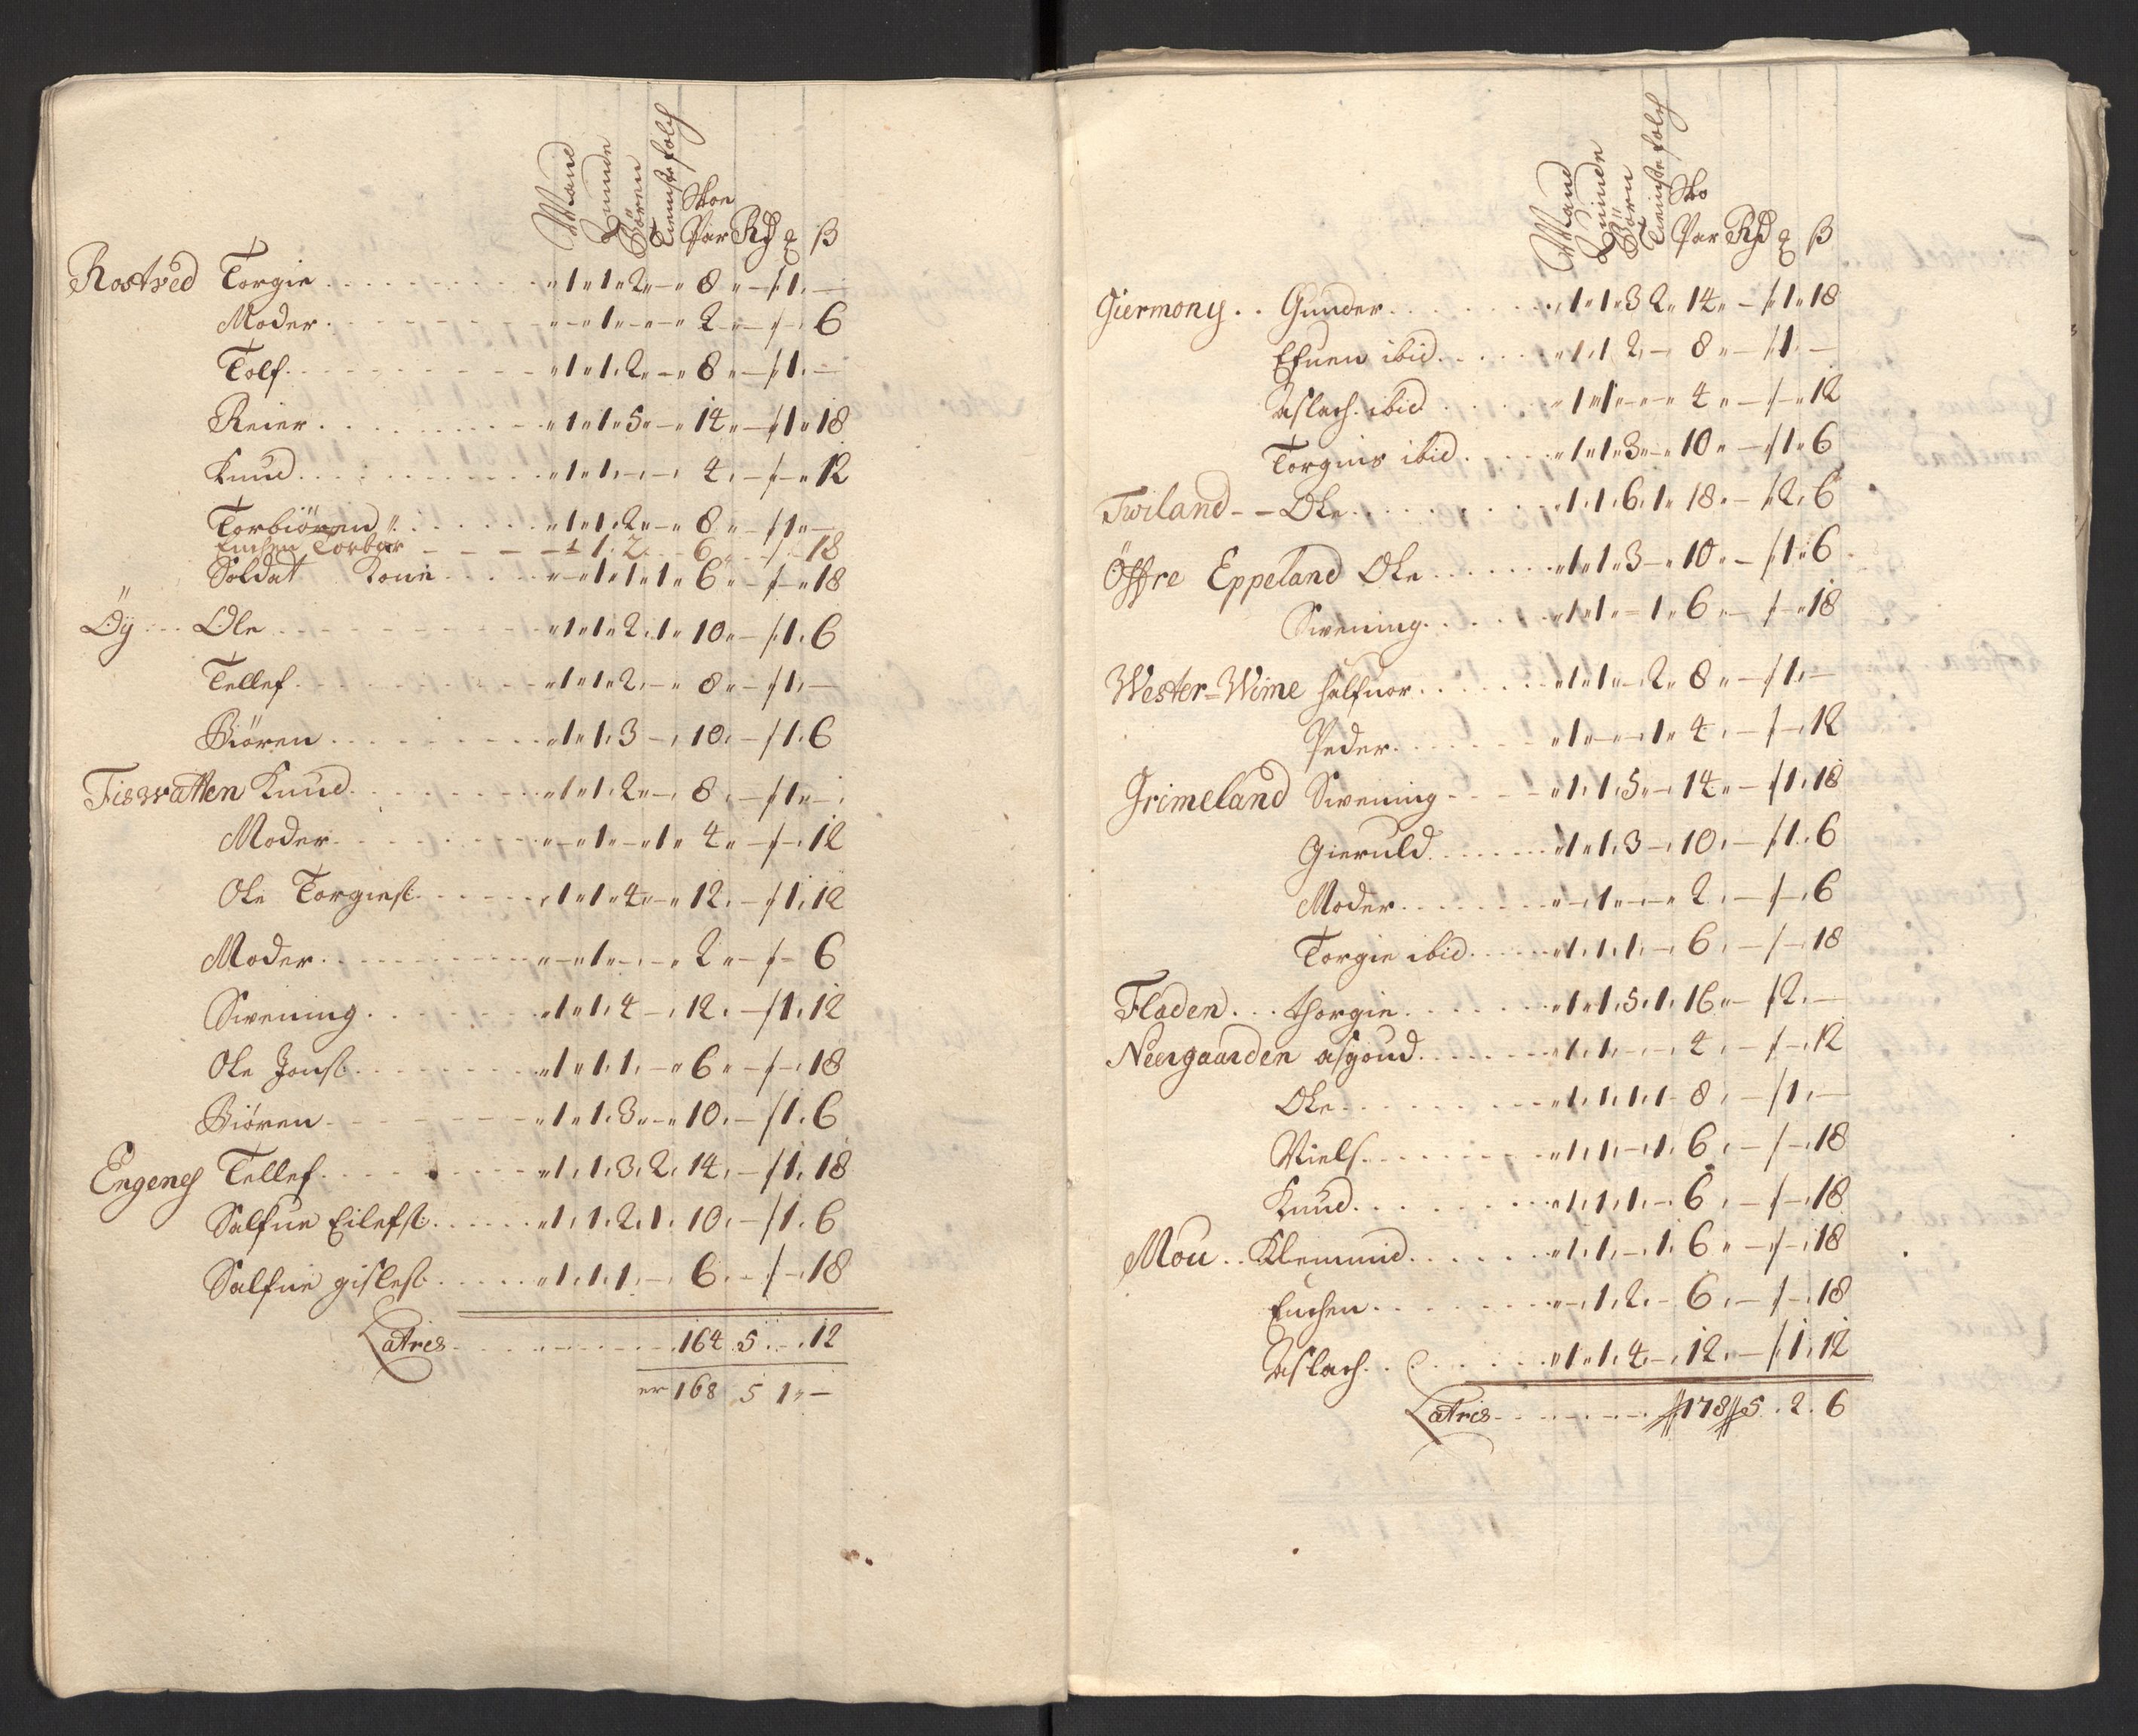 Mand Quinde Bören Tienistefolch Skoe Par Rd ß
Rostved Torgie . . . 1 1 2 – 8 – 1 –
Moder . . . – 1 – – 2 – – 6
Tolf . . . 1 1 2 – 8 – 1 –
Reier . . . 1 1 5 – 14 – 1 18
Knud . . . 1 1 – – 4 – – 12
Torbiören . . . 1 1 2 – 8 – 1 –
Enchen Torbor – – – 1 2 6 18
Soldat Kone . . . – 1 1 1 6 – – 18
Öÿ . . . Ole . . . 1 1 2 1 10 – 1 6
Tellef . . . 1 1 2 – 8 – 1 –
Biören . . . 1 1 3 – 10 – 1 6
Fiswatten Knud . . . 1 1 2 – 8 – 1 –
Moder . . . – 1 – 1 4 – – 12
Ole Torgies: . . . 1 1 4 – 12 – 1 12
Moder . . . – 1 – – 2 – – 6
Swening . . . 1 1 4 – 12 – 1 12
Ole Jons: . . . 1 1 1 – 6 – – 18
Biören . . . 1 1 3 – 10 – 1 6
Engenes Tellef . . . 1 1 3 2 14 – 1 18
Salfue Eilefs: . . . 1 1 2 1 10 – 1 6
Salfue gisles: . . . 1 1 1 – 6 – – 18
Latris . . . 164 5 – 12
er 168 5 1 –
Mand Quinde Börn Tienistefolch Sko Par Rd ß
Giermony . . Gunder . . . 1 1 3 2 14 – 1 18
Efuen ibid . . . 1 1 2 – 8 – 1 –
Aslach ibid . . . 1 1 – – 4 – – 12
Torgius ibid . . . 1 1 3 – 10 – 1 6
Twiland – – Ole . . . 1 1 6 1 18 – 2 6
Öffre Eppeland Ole . . . 1 1 3 – 10 – 1 6
Swening . . . 1 1 – 1 6 – – 18
Wester=Wime Halfuor . . . 1 1 – 2 8 – 1 –
Peder . . . 1 – – 1 4 – – 12
Grimeland Swening . . . 1 1 5 – 14 – 1 18
Gieruld . . . 1 1 3 – 10 – 1 6
Moder . . . – 1 – – 2 – – 6
Torgie ibid . . . 1 1 1 – 6 – – 18
Fladen . . . Thorgie . . . 1 1 5 1 16 – 2 –
Neergaarden Asgoud . . . 1 1 – – 4 – – 12
Ole . . . 1 1 1 1 8 – 1 –
Niels . . . 1 1 – 1 6 – – 18
Knud . . . 1 1 1 – 6 – – 18
Mou . . Klemmid . . . 1 1 – 1 6 – – 18
Enchen . . . – 1 2 – 6 – – 18
Aslach . . . 1 1 4 – 12 – 1 12
Latris . . . 178 5 2 6